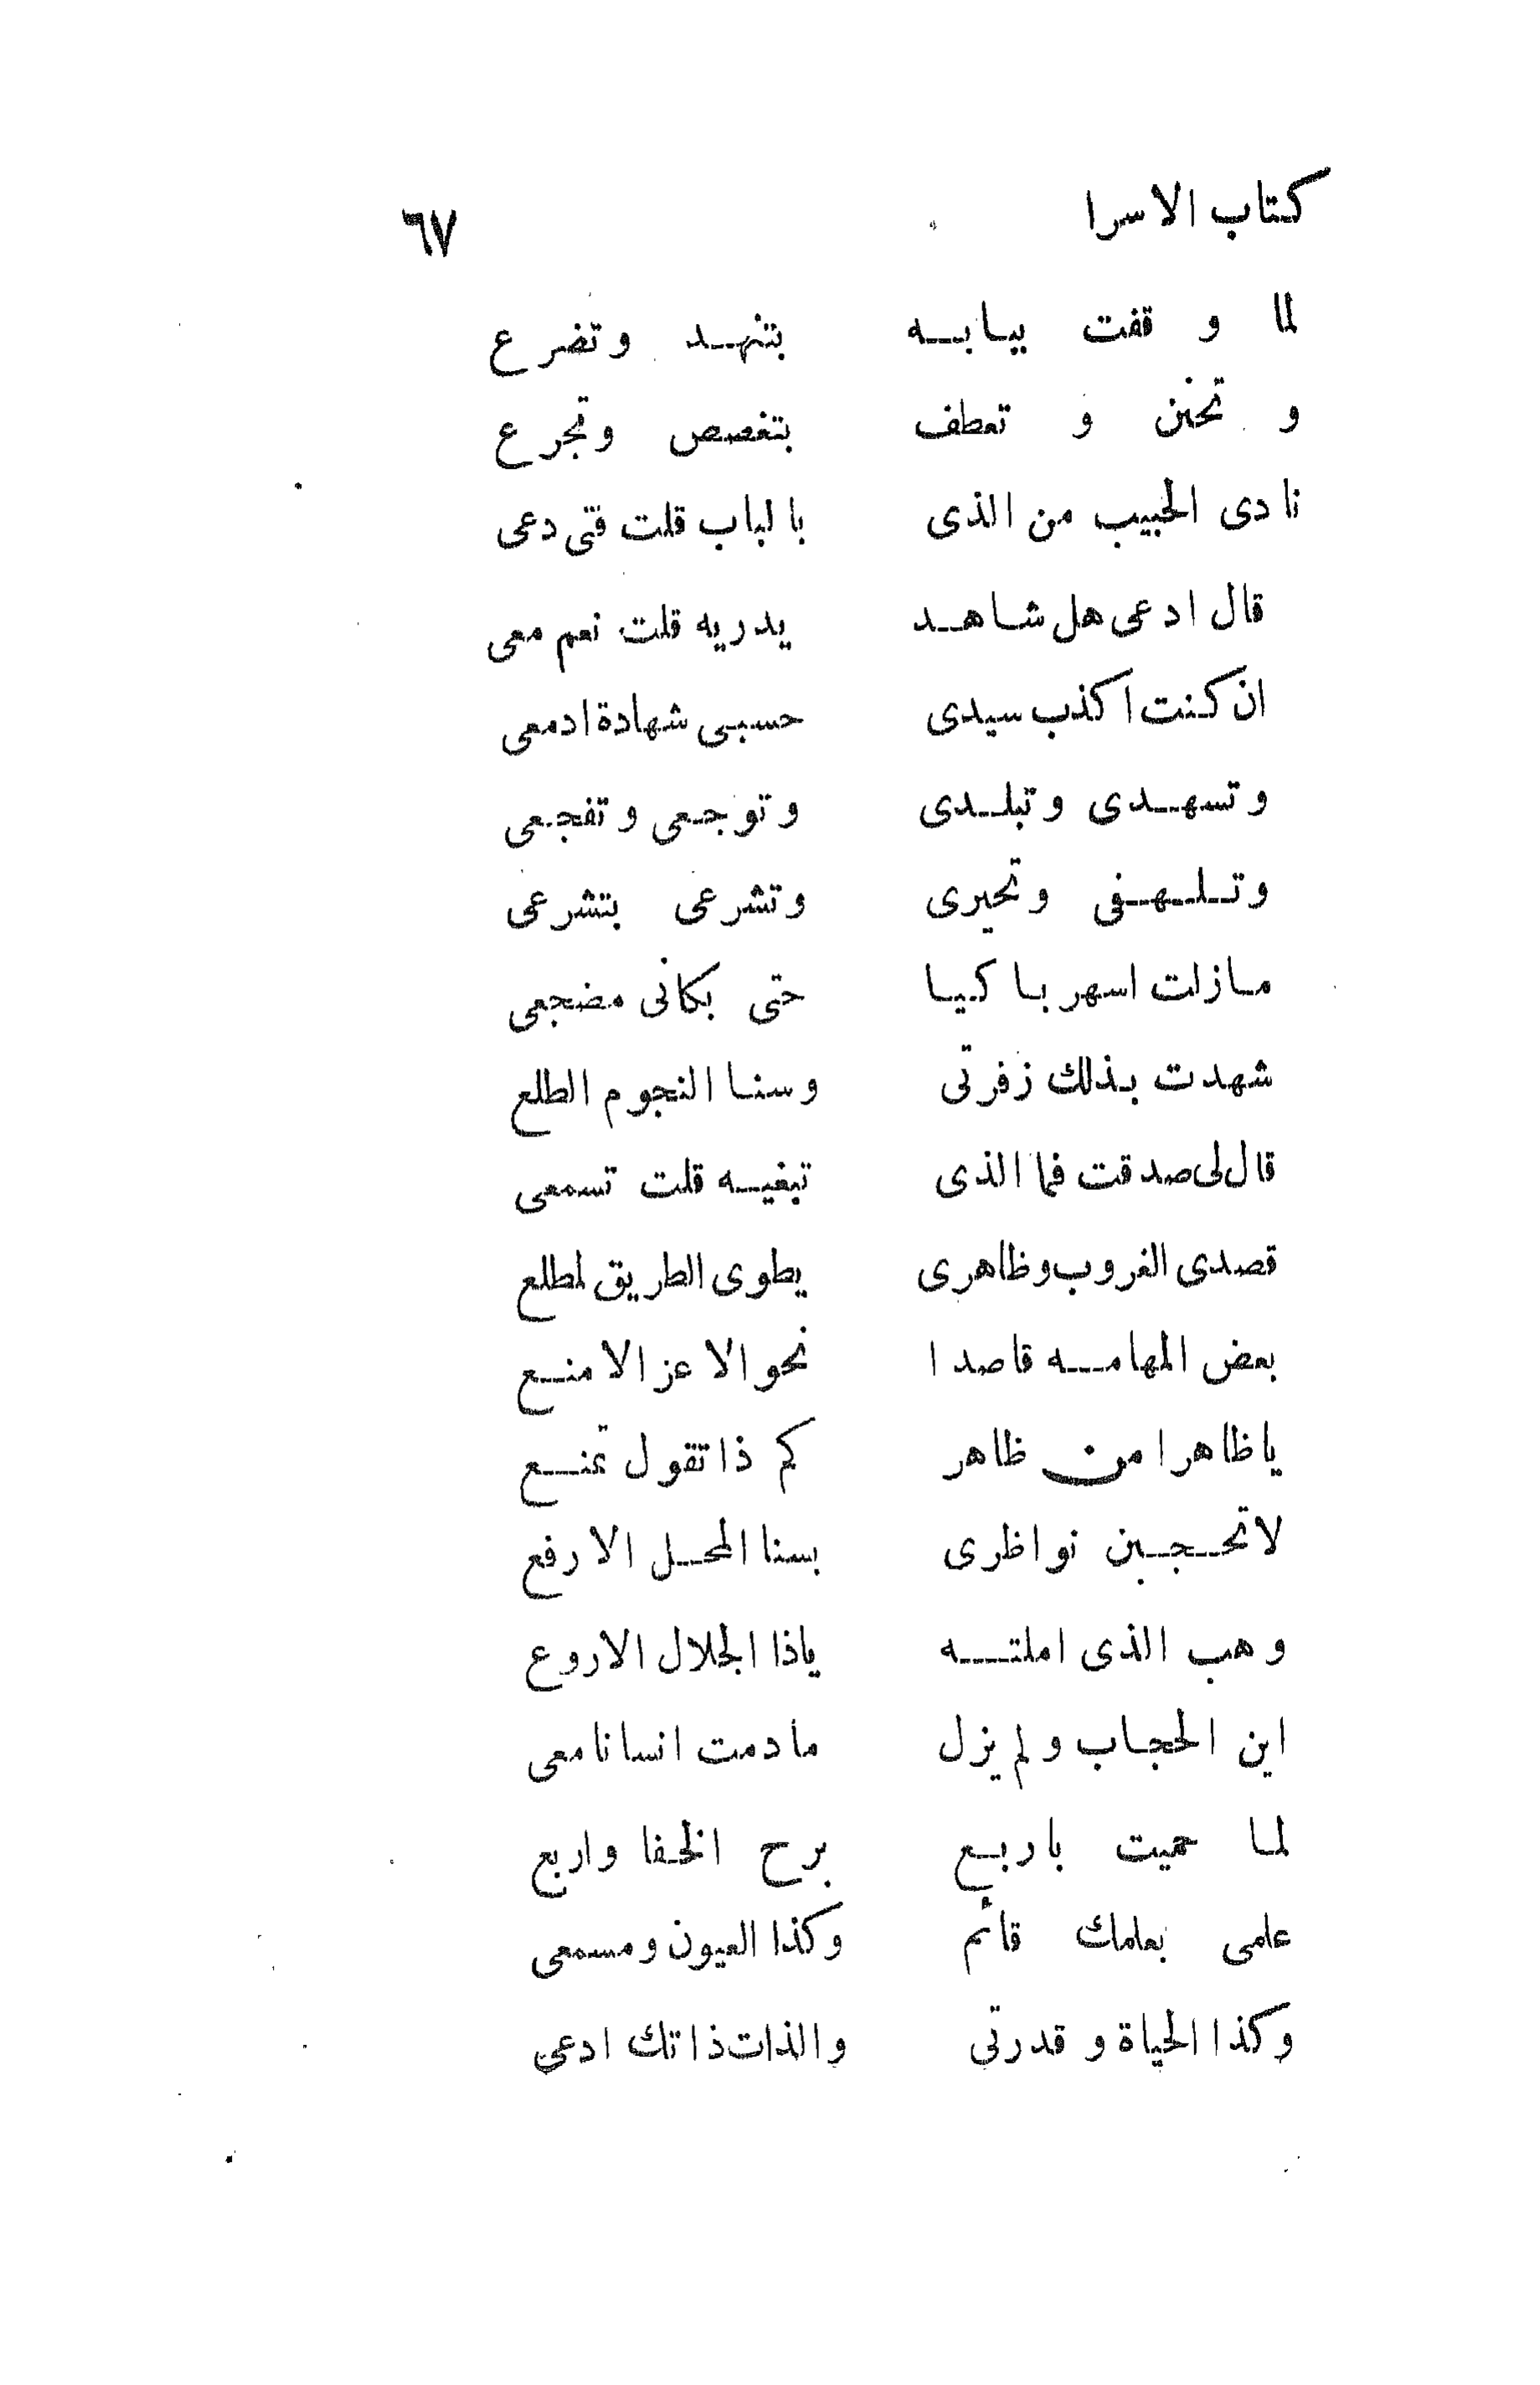 كتاب الاسرا ٦٧
لما وقفت ببابه بتنهد وتضرع
وتحنن وتعطف بتغصص وتجرع
نادى الحبيب من الذى بالباب قلت فتى دعى
قال ادعى هل شاهد يدريه قلت نعم معى
ان كنت اكذب سيدى حسبى شهادة ادمعى
وتسهدى وتبلدى وتوجعى وتفجعى
وتلهفى وتحيرى وتشرعى بتشرعى
مازلت اسهر باكيا حتى بكانى مضجعى
شهدت بذلك زفرتى وسنا النجوم الطلع
قال لى صدقت فما الذى تبغيه قلت تسمعى
قصدى الغروب وظاهرى يطوى الطريق لمطلع
بعض المهامه قاصدا نحو الاعز الامنع
ياظاهرا من ظاهر كم ذا تقول تمنع
لاتحجبن نواظرى بسنا المحل الارفع
وهب الذى املته ياذا الجلال الاروع
اين الحجاب ولم يزل مادمت انسانا معى
لما حميت باربع برح الخفا واربع
علمى بعلمك قائم وكذا العيون ومسمعى
وكذا الحياة وقدرتى والذات ذاتك ادعى